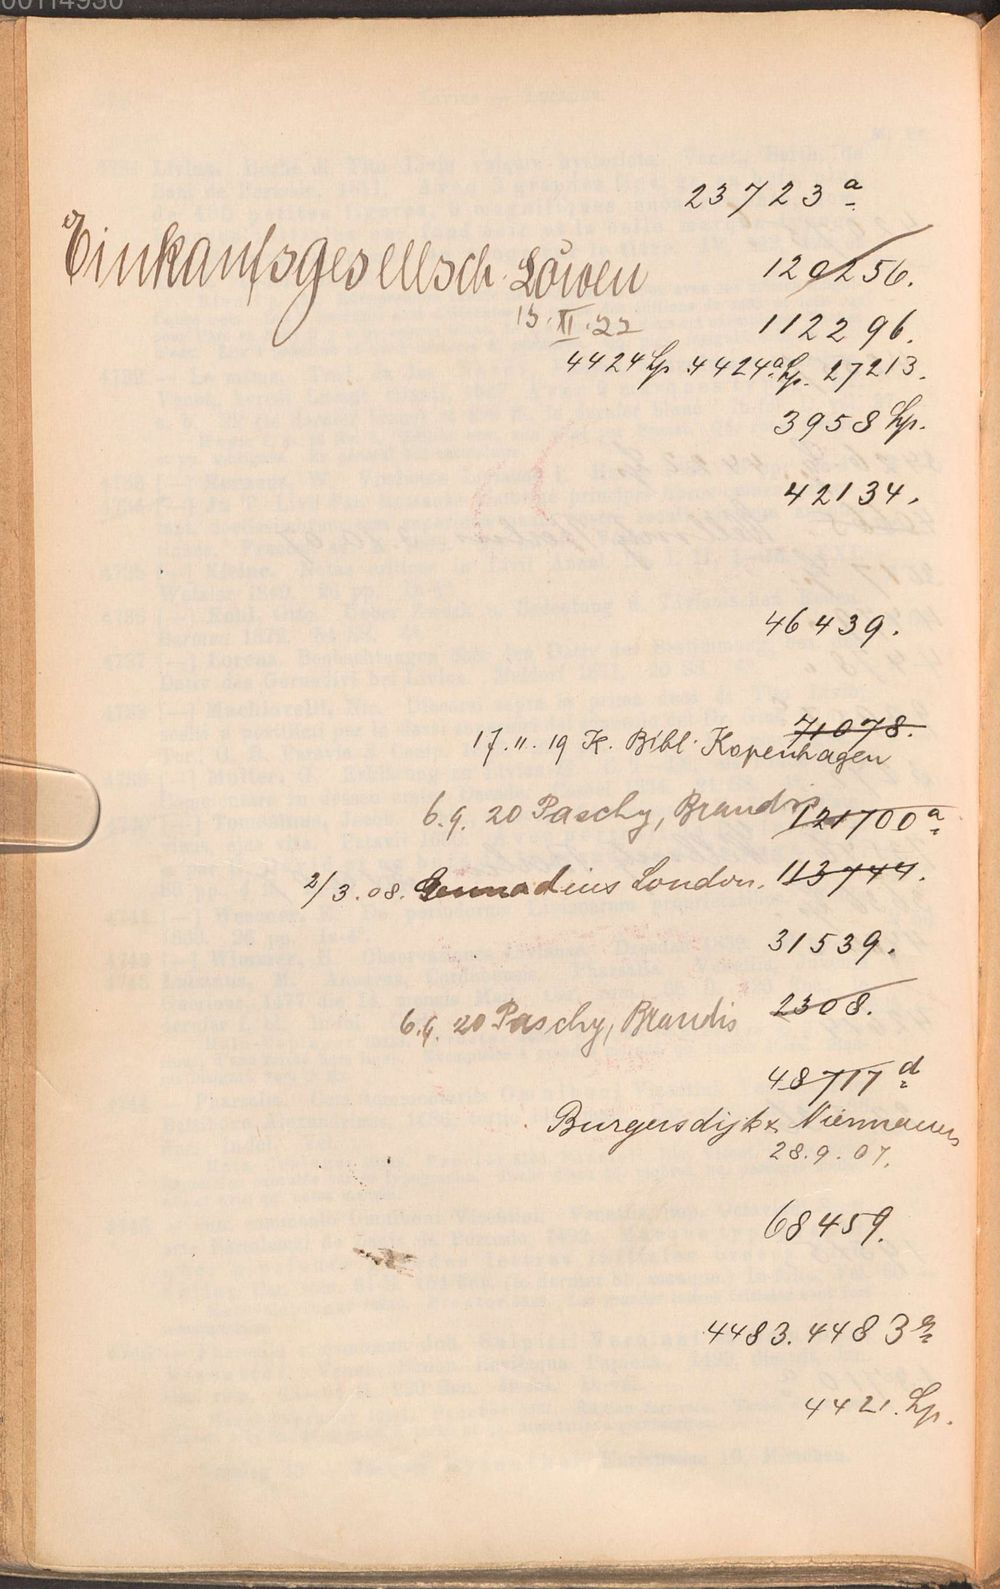 00114930
23723 a
Einkaufsgesellsch. Löwen
120256.
15. XI. 22
112296.
4424 Lp. 4424a Lp. 27213.
3958 Lp.
42134.
46439.
71078.
17. 11. 19 K. Bibl. Kopenhagen
6. 9. 20 Paschy, Brandis
121700 a
2/3. 08. Gennadius London. 113744.
31539.
6. 9. 20 Paschy, Brandis 2308.
48717 d
Burgersdijk & Niermans
28. 9. 07.
68459.
4483. 4483 a
4421. Lp.